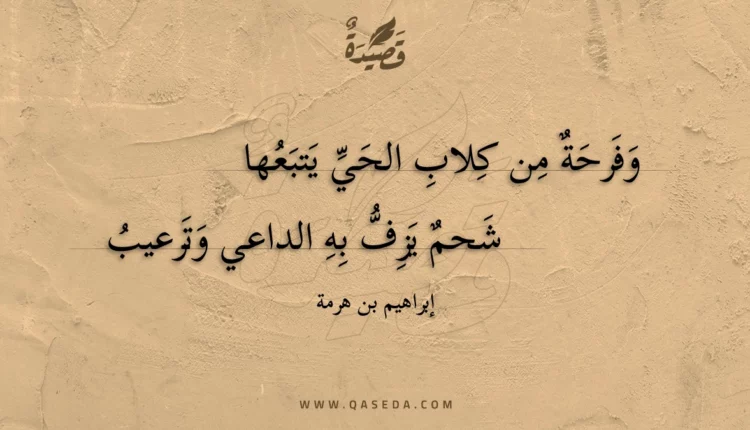 قَصِيدَةٌ
وَفَرحَةٌ مِن كِلابِ الحَيِّ يَتبَعُها
شَحمٌ يَزِفُّ بِهِ الداعي وَتَرعيبُ
إبراهيم بن هرمة
WWW.QASEDA.COM